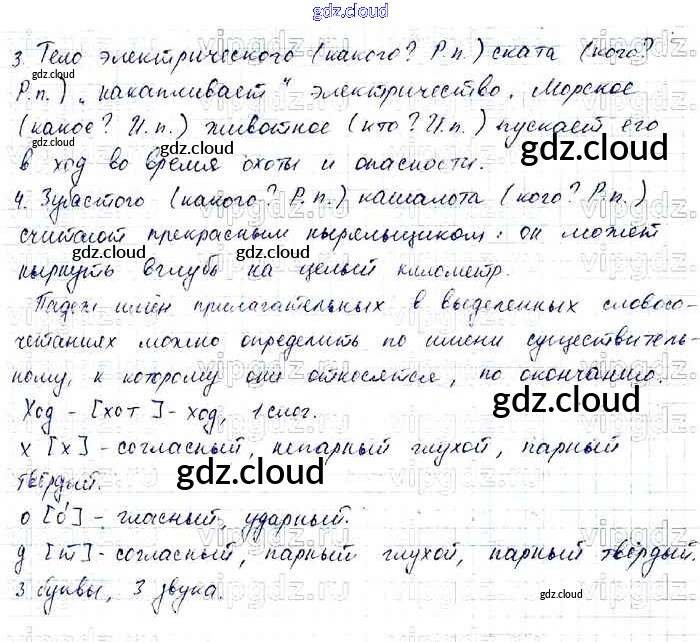 gdz.cloud
3. Тело электрического (какого? Р.п.) ската (кого?
Р.п.) „накапливает“ электричество. Морское
(какое? И.п.) животное (кто? И.п.) пускает его
в ход во время охоты и опасности.
4. Зубастого (какого? Р.п.) кашалота (кого? Р.п.)
считают прекрасным ныряльщиком: он может
нырнуть вглубь на целый километр.
Падеж имён прилагательных в выделенных словосо-
четаниях можно определить по имени существитель-
ному, к которому они относятся, по окончанию.
Ход - [хот] - ход, 1 слог.
х [х] - согласный, непарный глухой, парный
твёрдый.
о [о́] - гласный, ударный.
д [т] - согласный, парный глухой, парный твёрдый.
3 буквы, 3 звука.